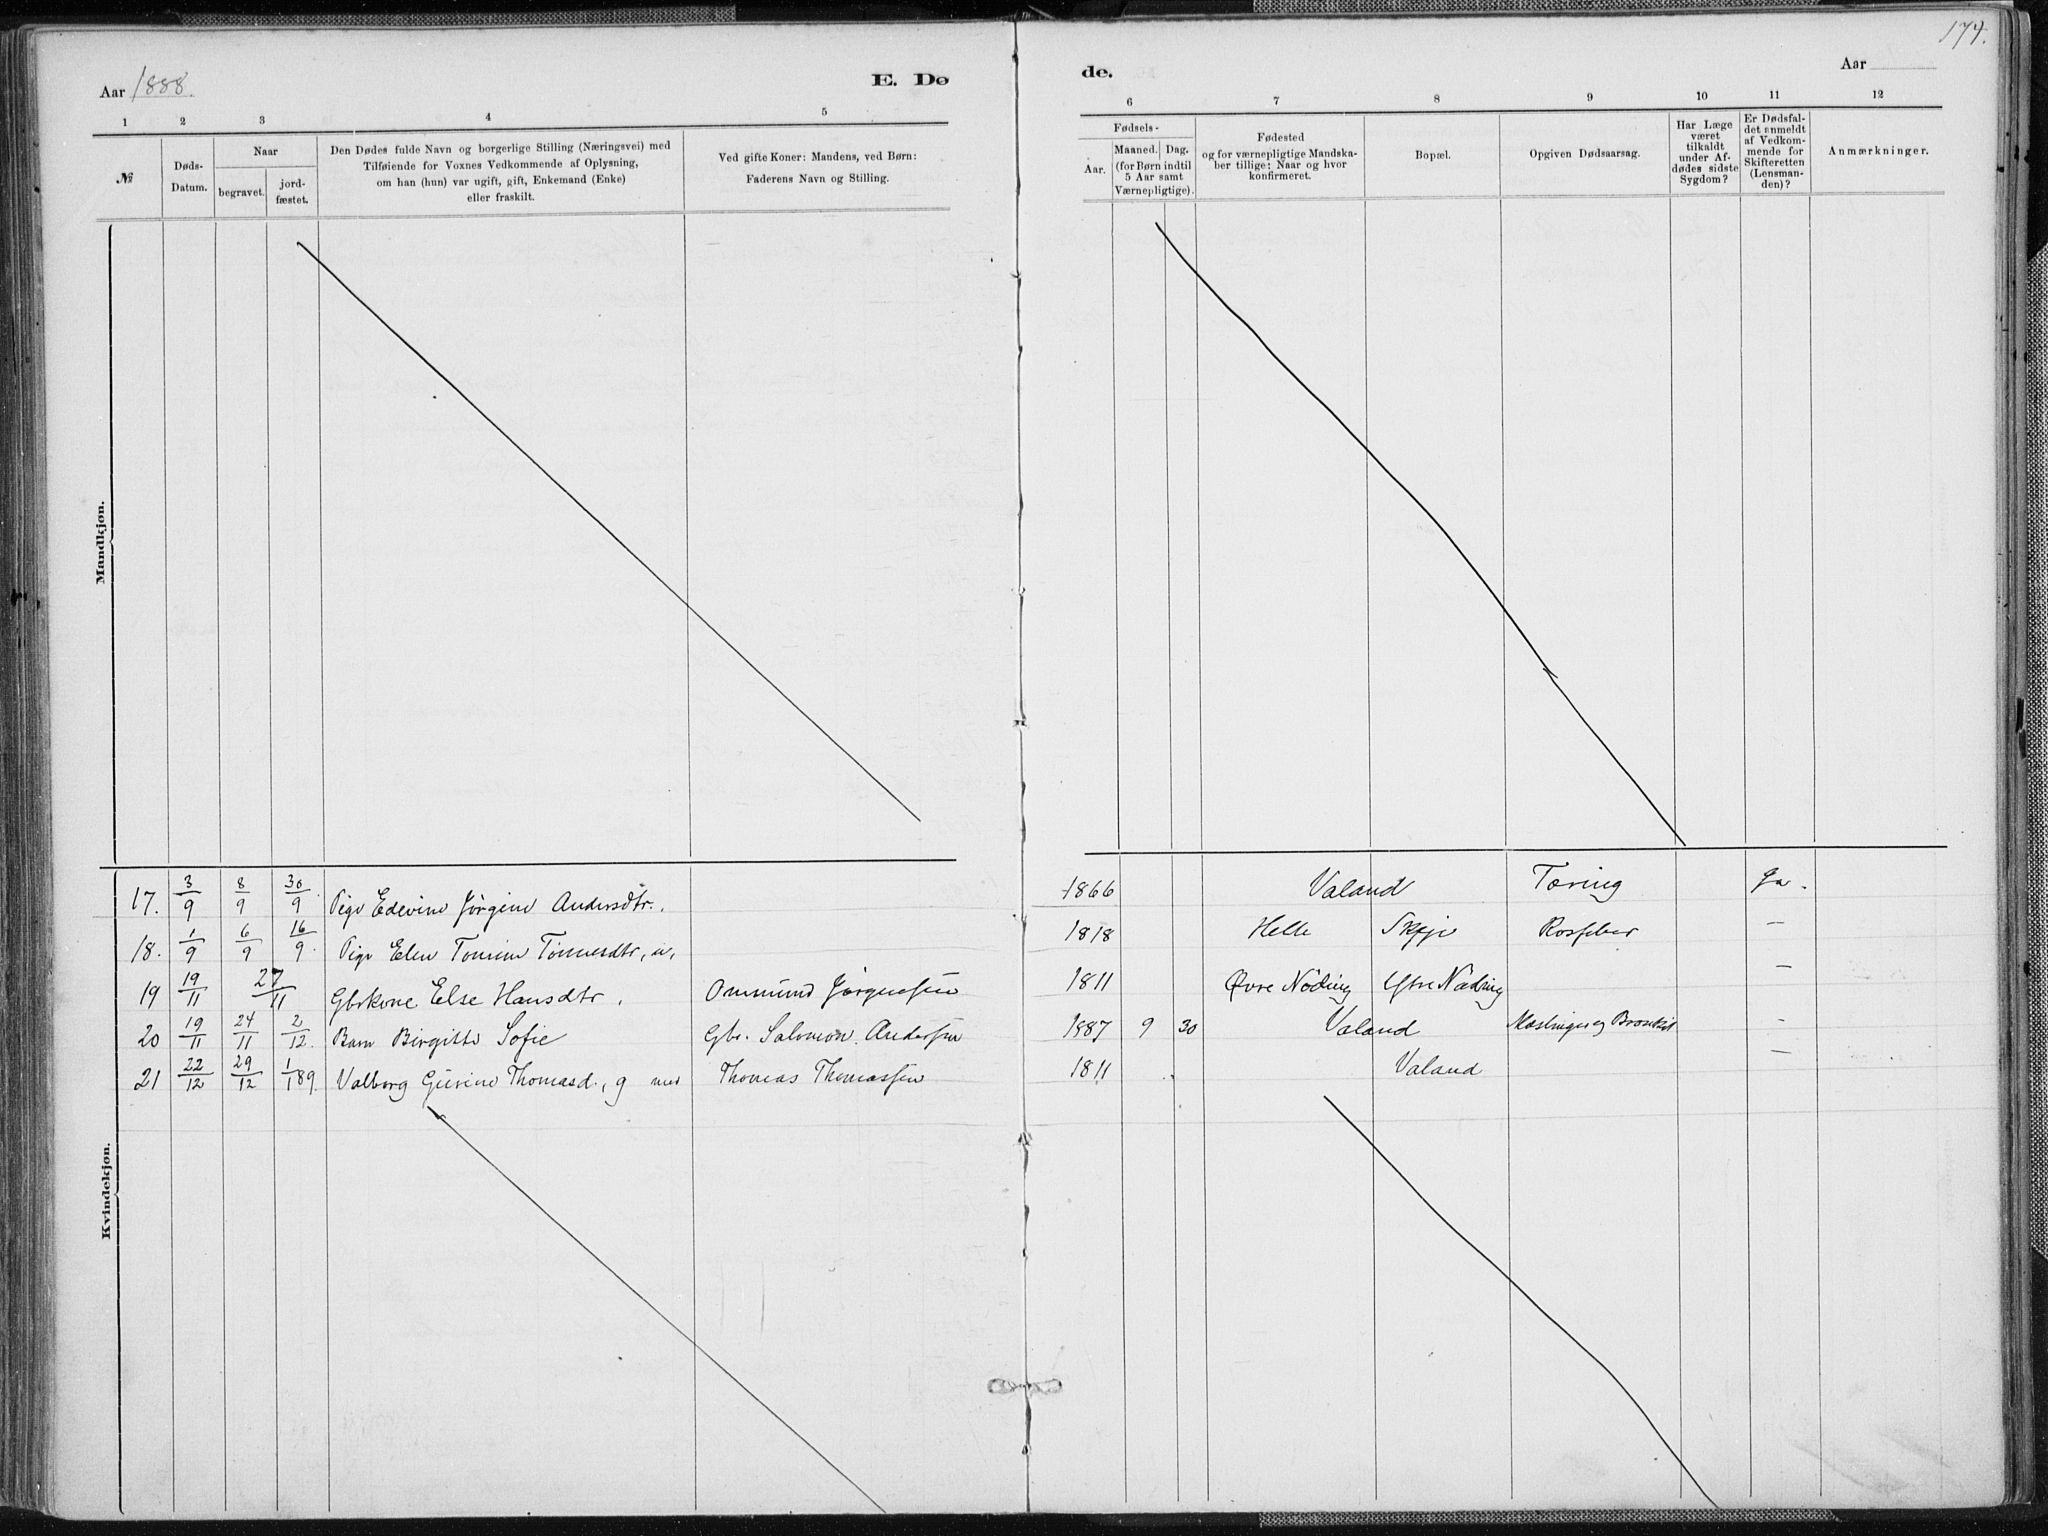 174.
Aar 1888. E. Dø de. Aar
1 2 3 4 5 6 7 8 9 10 11 12
№
Døds-Datum.
Naar
begravet.
jord-fæstet.
Den Dødes fulde Navn og borgerlige Stilling (Næringsvei) med
Tilføiende for Voxnes Vedkommende af Oplysning,
om han (hun) var ugift, gift, Enkemand (Enke)
eller fraskilt.
Ved gifte Koner: Mandens, ved Børn:
Faderens Navn og Stilling.
Fødsels-
Aar.
Maaned. Dag.
(for Børn indtil
5 Aar samt
Værnepligtige).
Fødested
og for værnepligtige Mandska-
ber tillige: Naar og hvor
konfirmeret.
Bopæl.
Opgiven Dødsaarsag.
Har Læge
været
tilkaldt
under Af-
dødes sidste
Sygdom?
Er Dødsfal-
det anmeldt
af Vedkom-
mende for
Skifteretten
(Lensman-
den)?
Anmærkninger.
Mandkjøn.
Kvindekjøn.
17. 3/9 8/9 30/9 Pige Edevine Jørgine Andersdtr. 1866 Valand Tæring Ja.
18. 1/9 6/9 16/9. Pige Elen Tomine Tønnesdtr, u, 1818 Helle Skeje —
19 19/11 27/11 Gbrkone Else Hansdtr. Ommund Jørgensen 1811 Øvre Nöding Ytre Nöding —
20 19/11 24/11 2/12. Barn Birgitte Sofie Gbr. Salomon Andersen 1887 9 30 Valand Mæslinger og Bronkit —
21 22/12 29/12 1/1 89. Valborg Gurine Thomasd., g med Thomas Thomassen 1811 Valand —